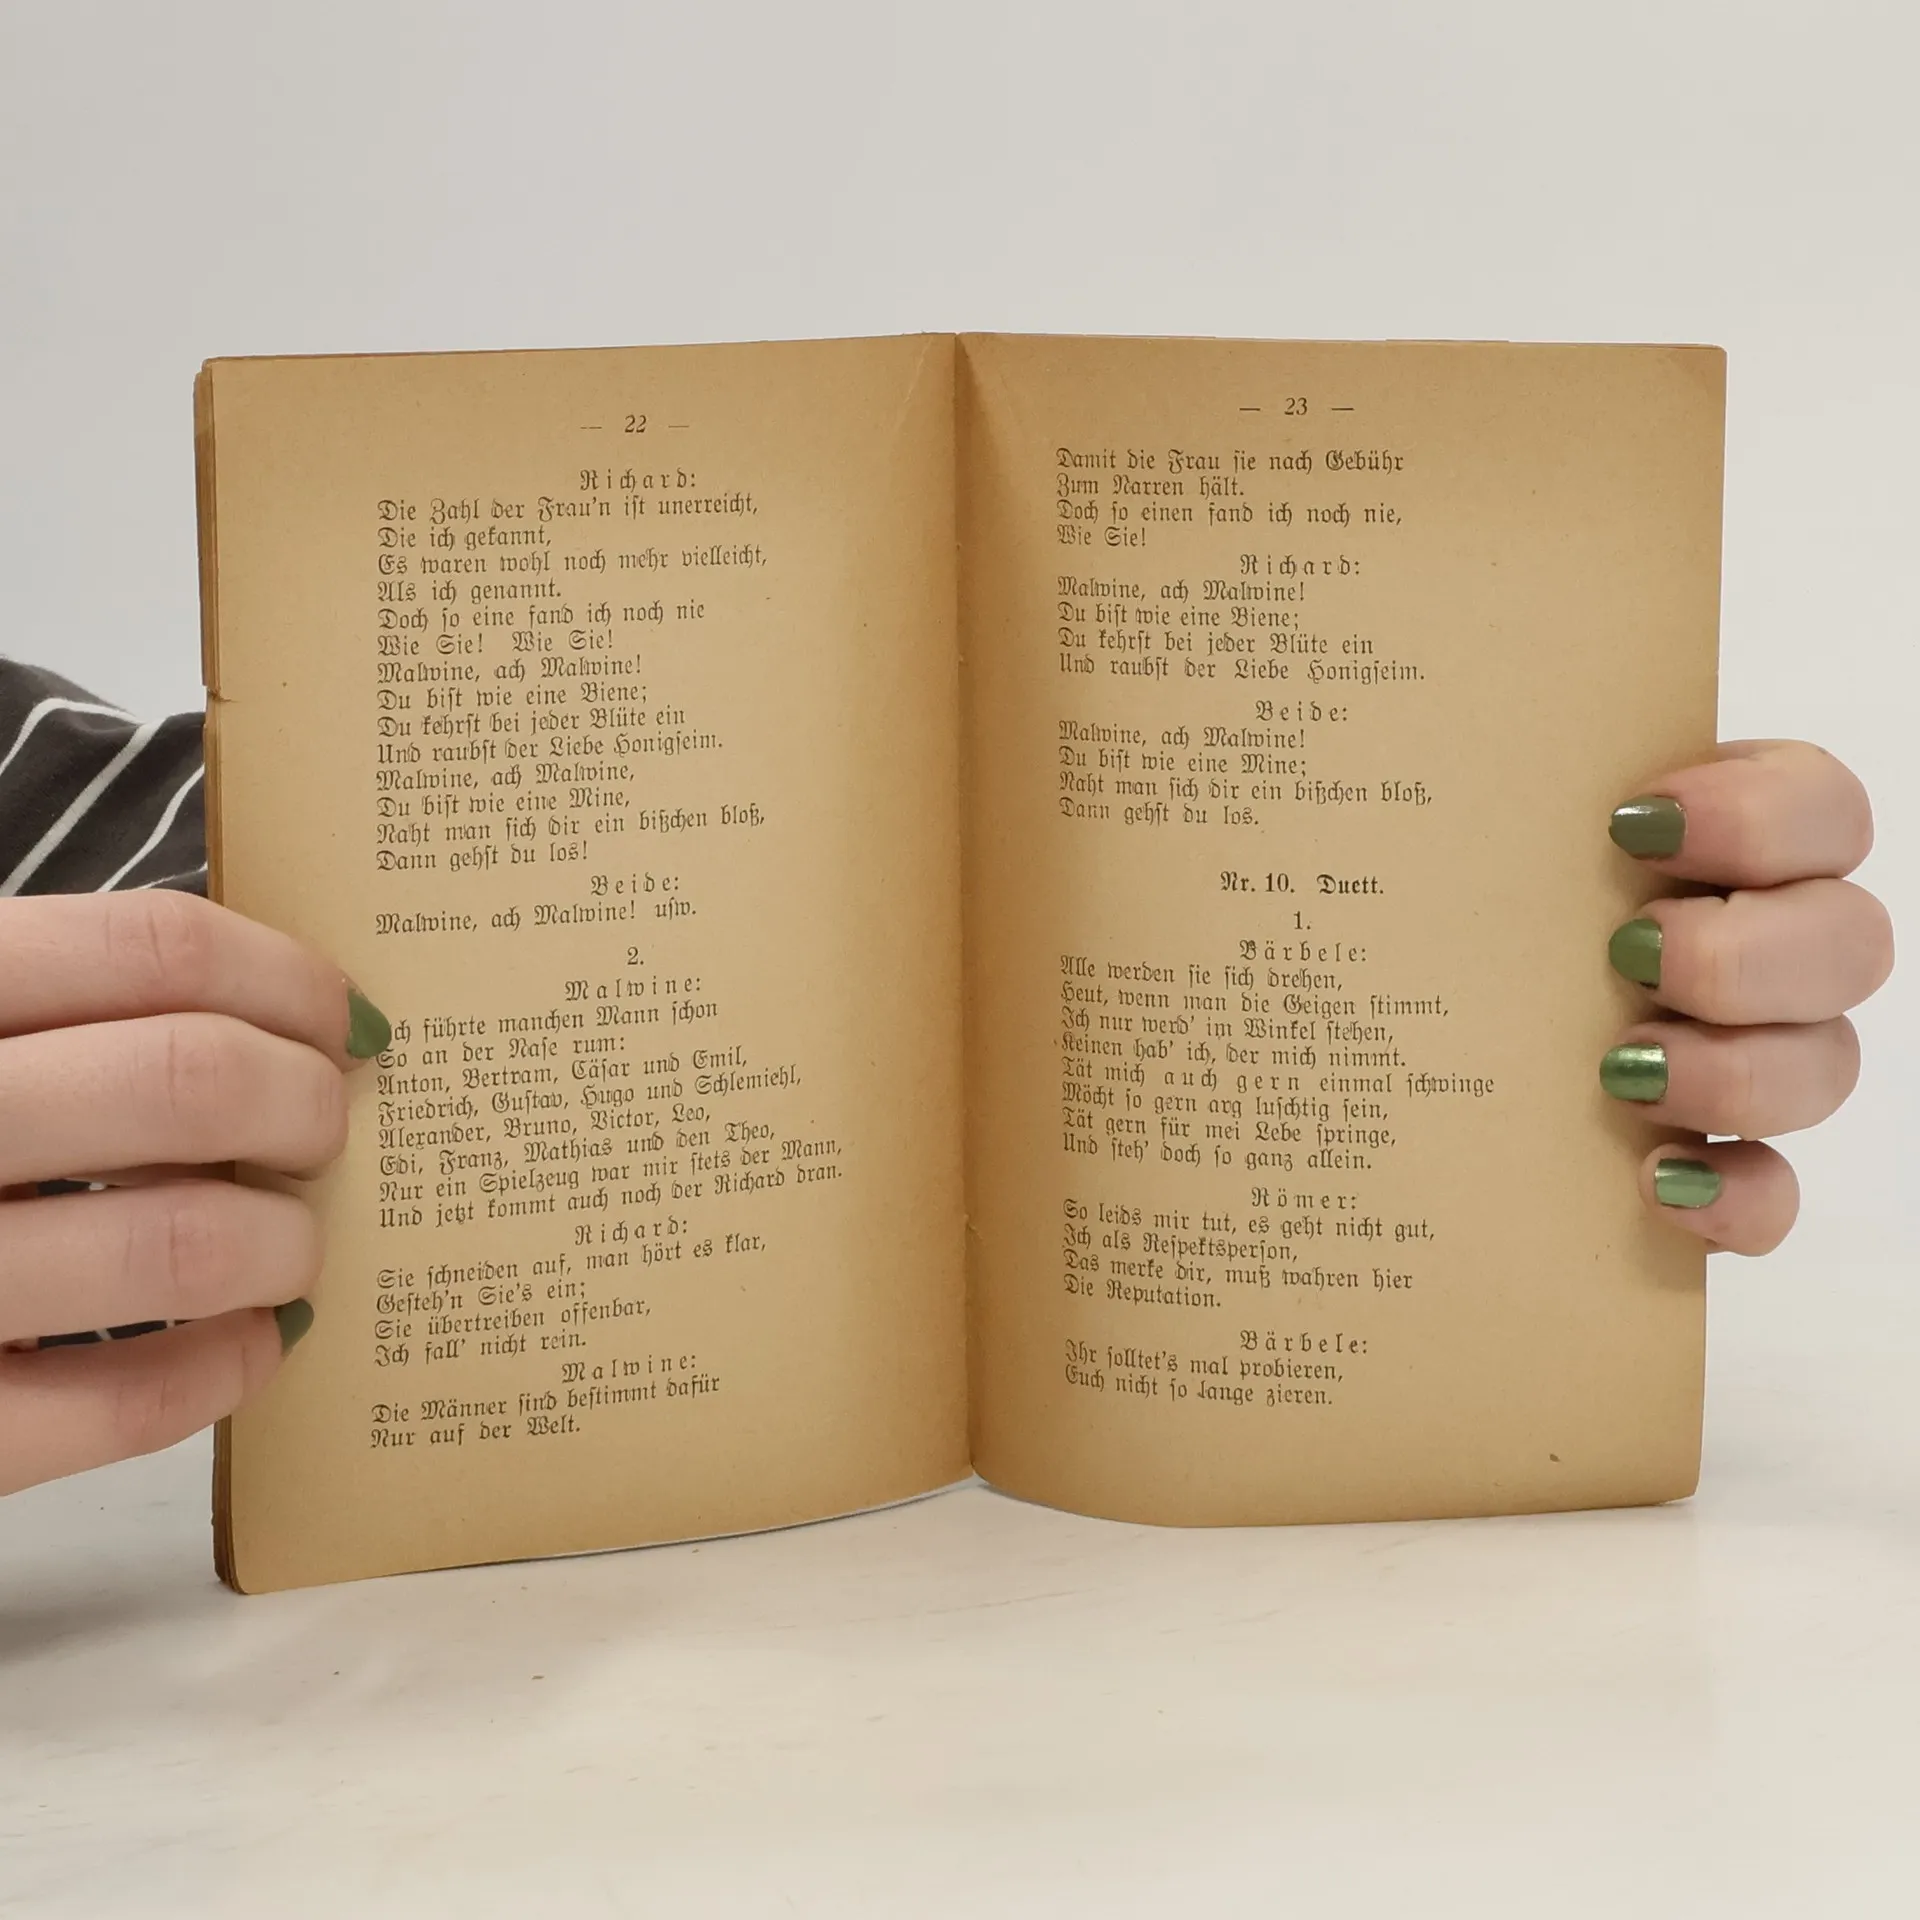 — 22 —
Richard:
Die Zahl der Frau'n ist unerreicht,
Die ich gekannt,
Es waren wohl noch mehr vielleicht,
Als ich genannt.
Doch so eine fand ich noch nie
Wie Sie! Wie Sie!
Malwine, ach Malwine!
Du bist wie eine Biene;
Du kehrst bei jeder Blüte ein
Und raubst der Liebe Honigseim.
Malwine, ach Malwine,
Du bist wie eine Mine,
Naht man sich dir ein bißchen bloß,
Dann gehst du los!
Beide:
Malwine, ach Malwine! usw.
2.
Malwine:
Ich führte manchen Mann schon
So an der Nase rum:
Anton, Bertram, Cäsar und Emil,
Friedrich, Gustav, Hugo und Schlemiehl,
Alexander, Bruno, Victor, Leo,
Edi, Franz, Mathias und den Theo,
Nur ein Spielzeug war mir stets der Mann,
Und jetzt kommt auch noch der Richard dran.
Richard:
Sie schneiden auf, man hört es klar,
Gesteh'n Sie's ein;
Sie übertreiben offenbar,
Ich fall' nicht rein.
Malwine:
Die Männer sind bestimmt dafür
Nur auf der Welt.
— 23 —
Damit die Frau sie nach Gebühr
Zum Narren hält.
Doch so einen fand ich noch nie,
Wie Sie!
Richard:
Malwine, ach Malwine!
Du bist wie eine Biene;
Du kehrst bei jeder Blüte ein
Und raubst der Liebe Honigseim.
Beide:
Malwine, ach Malwine!
Du bist wie eine Mine;
Naht man sich dir ein bißchen bloß,
Dann gehst du los.
Nr. 10. Duett.
1.
Bärbele:
Alle werden sie sich drehen,
Heut, wenn man die Geigen stimmt,
Ich nur werd' im Winkel stehen,
Keinen hab' ich, der mich nimmt.
Tät mich auch gern einmal schwinge
Möcht so gern arg luschtig sein,
Tät gern für mei Lebe springe,
Und steh' doch so ganz allein.
Römer:
So leids mir tut, es geht nicht gut,
Ich als Respektsperson,
Das merke dir, muß wahren hier
Die Reputation.
Bärbele:
Ihr solltet's mal probieren,
Euch nicht so lange zieren.